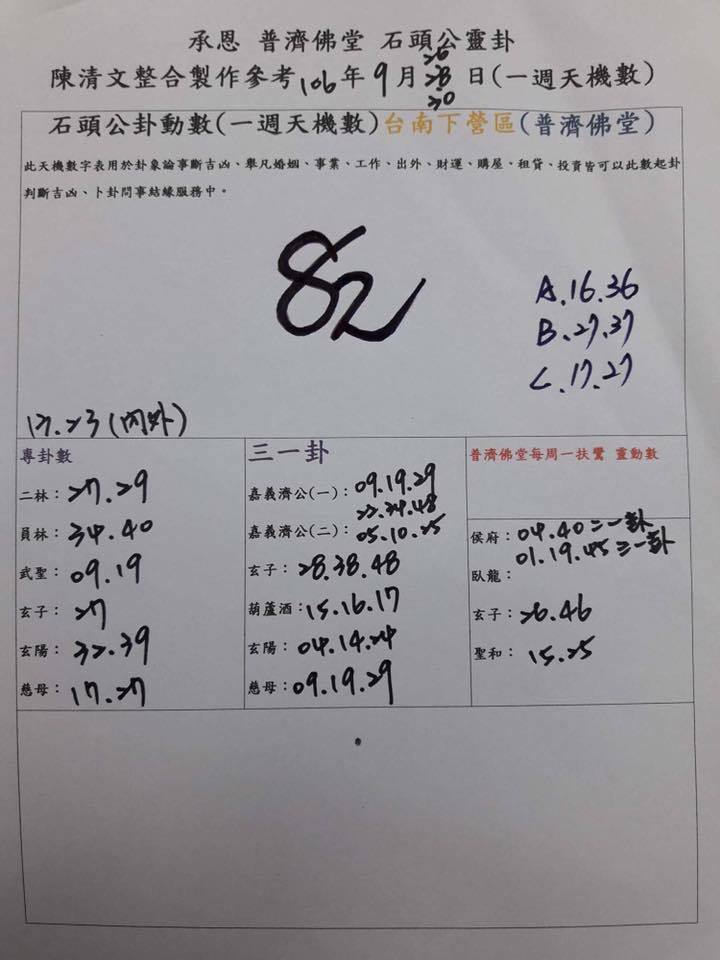 承恩 普濟佛堂 石頭公靈卦
26
陳清文整合製作參考106年9月28日(一週天機數)
30
石頭公卦動數(一週天機數)台南下營區(普濟佛堂)
此天機數字表用於卦象論事斷吉凶、舉凡婚姻、事業、工作、出外、財運、購屋、租貸、投資皆可以此數起卦
判斷吉凶、卜卦問事結緣服務中。
82
A.16.36
B.27.37
C.17.27
(內外)
專卦數
二林：27.29
員林：34.40
武聖：09.19
玄子：27
玄陽：32.39
慈母：17.27
三一卦
嘉義濟公(一)：09.19.29
嘉義濟公(二)：05.10.25
玄子：28.38.48
葫蘆酒：15.16.17
玄陽：04.14.24
慈母：09.19.29
普濟佛堂每周一扶鸞 靈動數
侯府：04.40二一卦
01.19.45三一卦
臥龍：
玄子：26.46
聖和：15.25